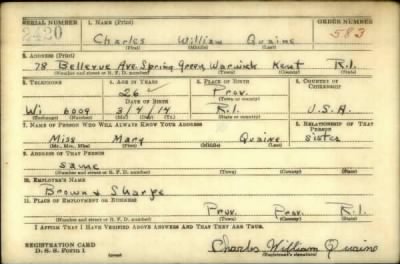 SERIAL NUMBER 1. NAME (Print) ORDER NUMBER
2420 Charles William Quaine 583
(First) (Middle) (Last)
2. ADDRESS (Print)
78 Bellevue Ave. Spring Green, Warwick Kent R.I.
(Number and street or R. F. D. number) (Town) (County) (State)
3. TELEPHONE 4. AGE IN YEARS 5. PLACE OF BIRTH 6. COUNTRY OF CITIZENSHIP
26 Prov.
DATE OF BIRTH (Town or county)
Wi 6009 3/9/14 R.I. U.S.A.
(Exchange) (Number) (Mo.) (Day) (Yr.) (State or country)
7. NAME OF PERSON WHO WILL ALWAYS KNOW YOUR ADDRESS 8. RELATIONSHIP OF THAT PERSON
Miss Mary Quaine sister
(Mr., Mrs., Miss) (First) (Middle) (Last)
9. ADDRESS OF THAT PERSON
same
(Number and street or R. F. D. number) (Town) (County) (State)
10. EMPLOYER'S NAME
Brown & Sharpe
11. PLACE OF EMPLOYMENT OR BUSINESS
Prov. Prov. R.I.
(Number and street or R. F. D. number) (Town) (County) (State)
I AFFIRM THAT I HAVE VERIFIED ABOVE ANSWERS AND THAT THEY ARE TRUE.
REGISTRATION CARD
D. S. S. Form 1 Charles William Quaine
(Registrant's signature)